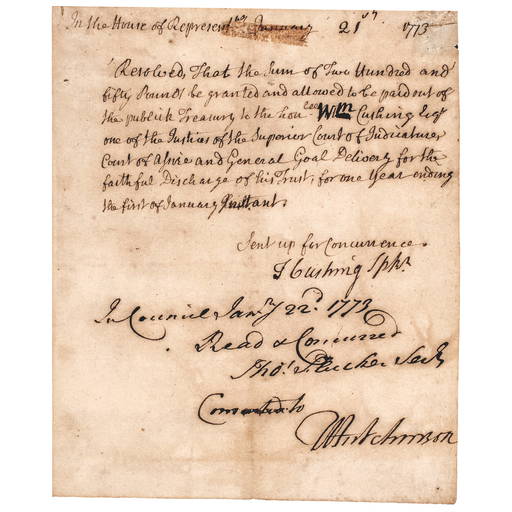 In the House of Represent.ves January 21st 1773
Resolved, That the Sum of Two Hundred and
fifty Pounds be granted and allowed to be paid out of
the publick Treasury to the hon.ble Wm Cushing Esqr
one of the Justices of the Superior Court of Judicature,
Court of Assize and General Goal Delivery for the
faithful Discharge of his Trust, for one Year ending
the first of January Instant.
Sent up for Concurrence
T Cushing Spkr.
In Council Jan.y 22d. 1773
Read & Concurred
Tho.s Flucker Secy
Consented to
T Hutchinson